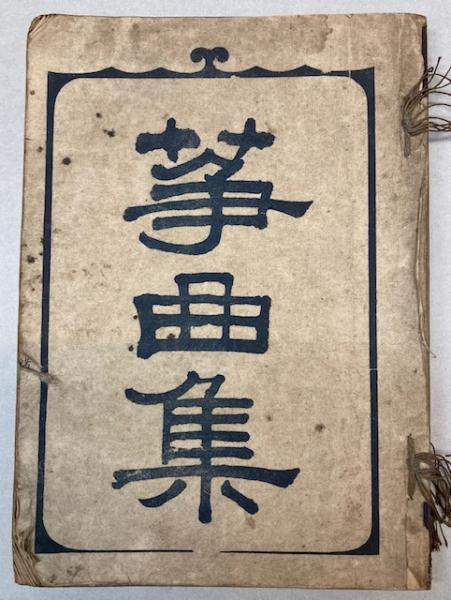 箏曲集